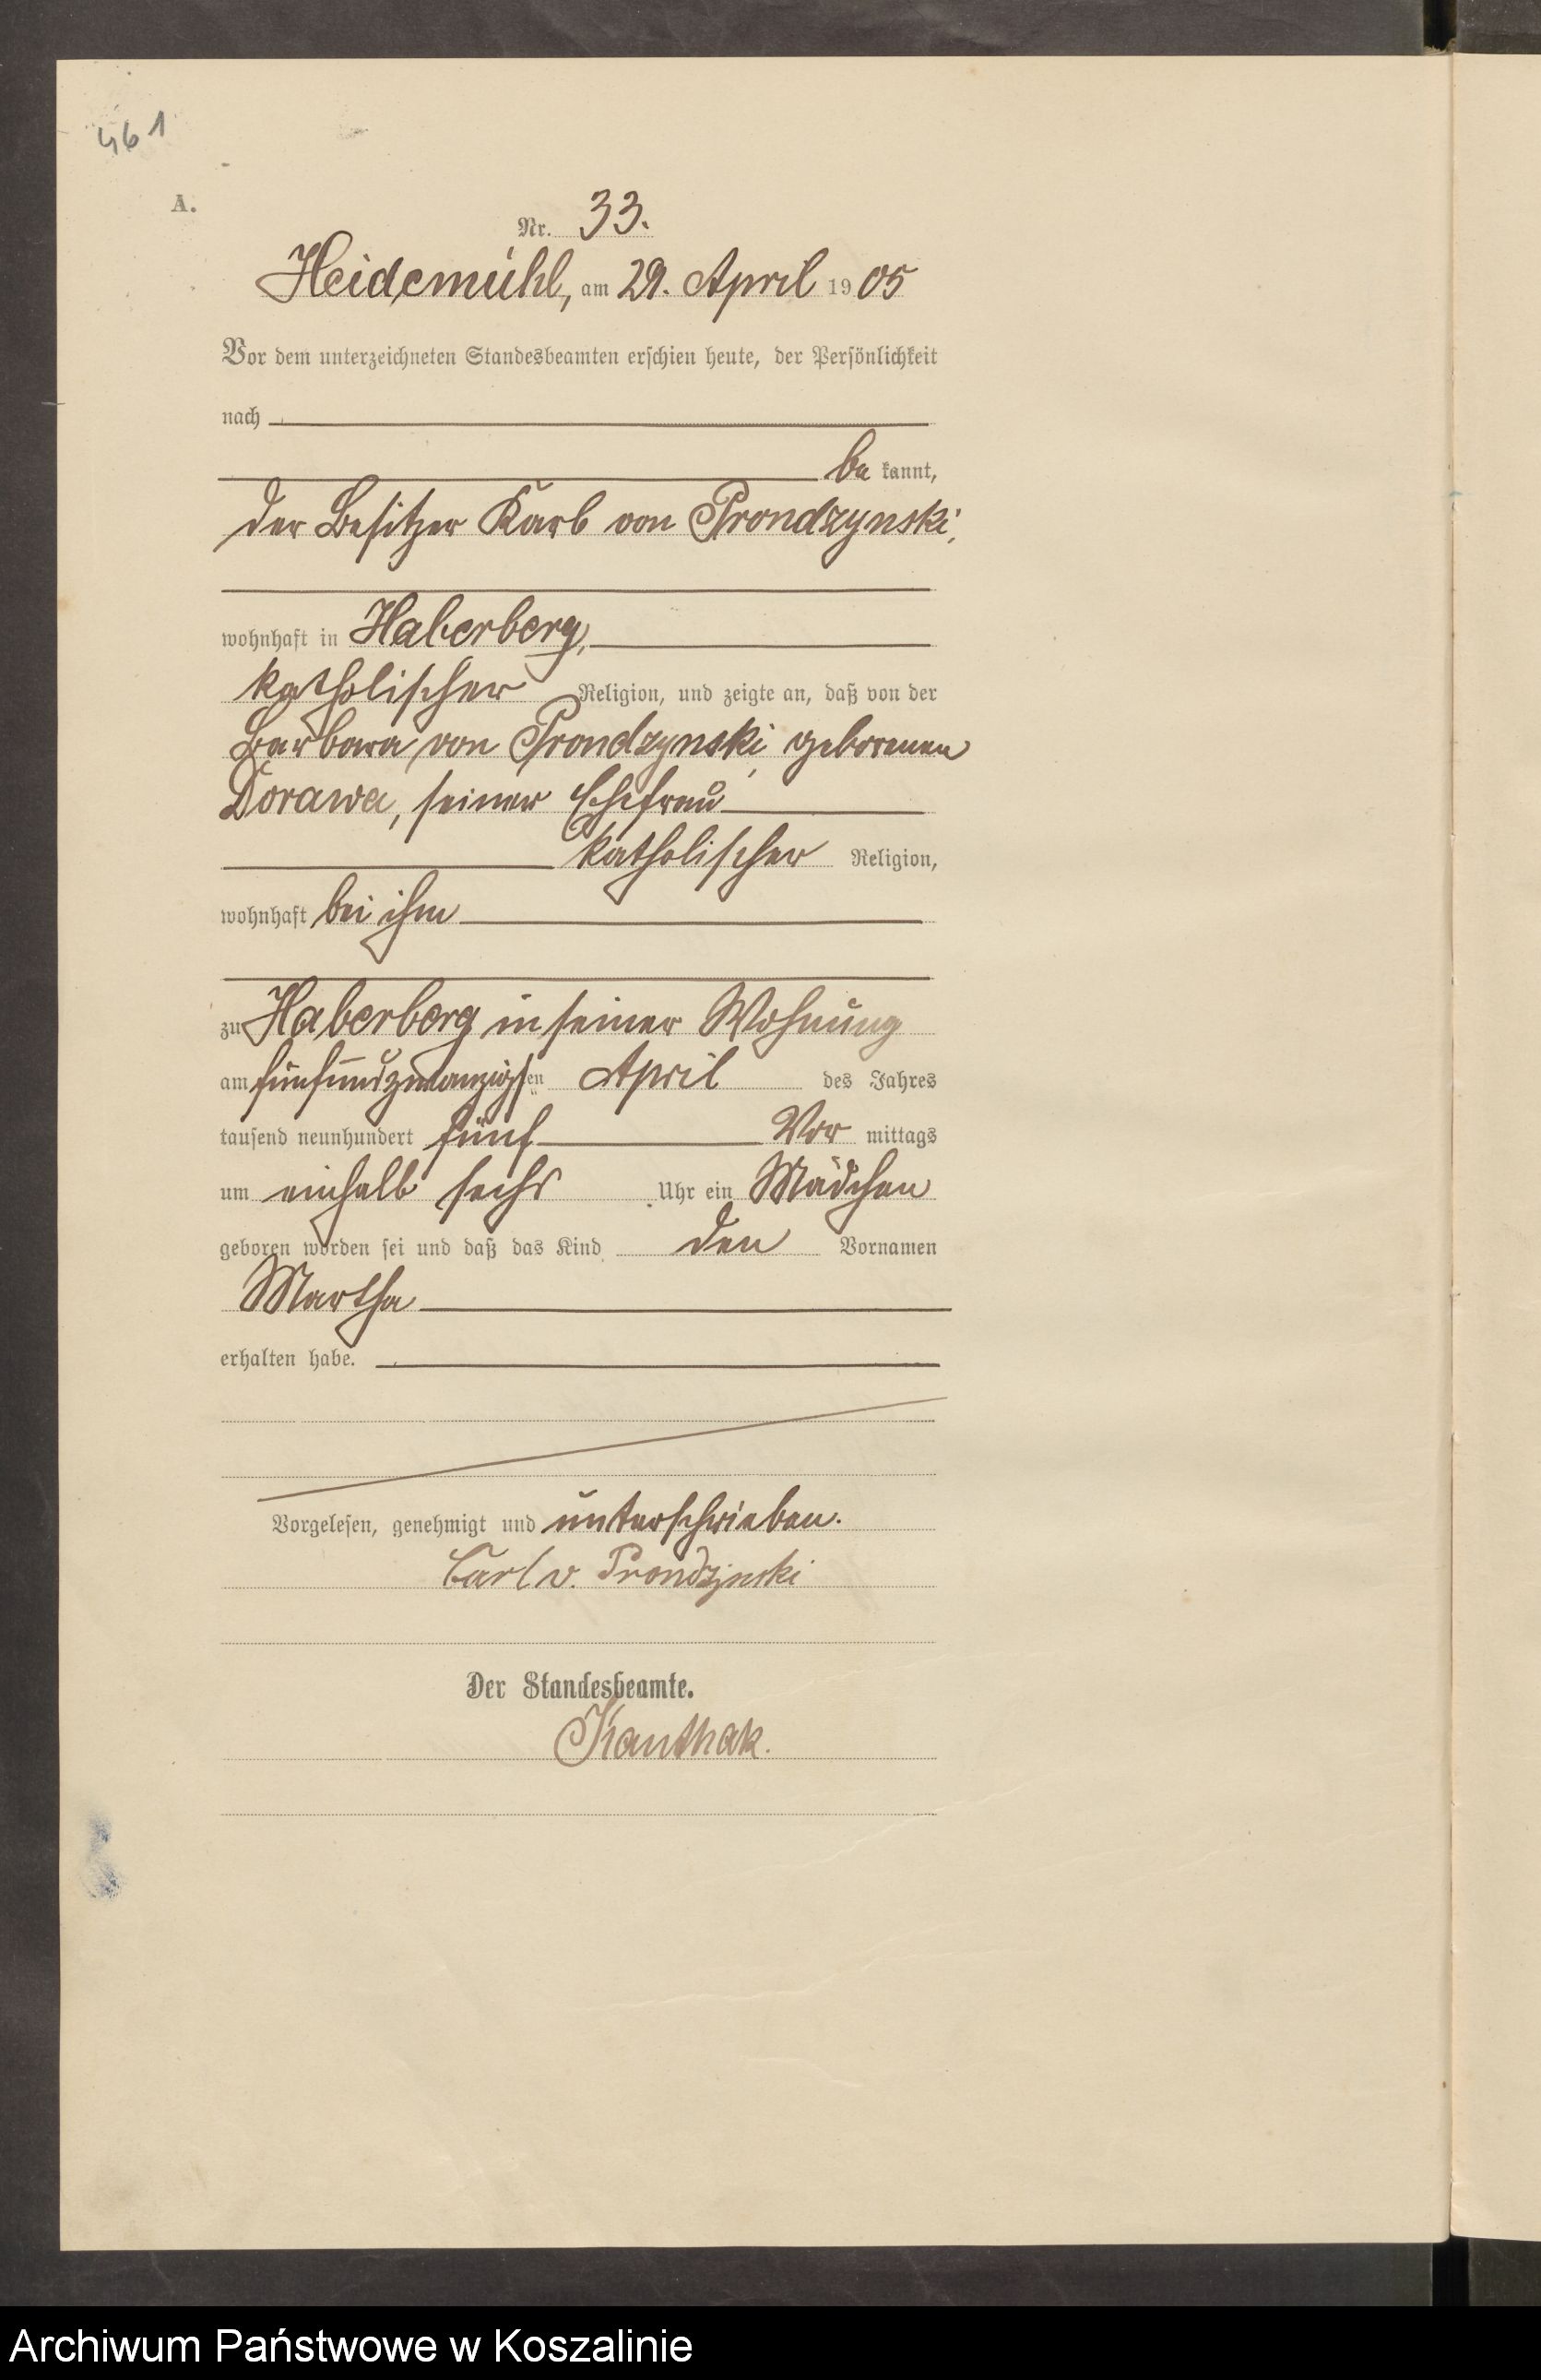 461
A.
Nr. 33.
Heidemühl, am 29. April 1905
Vor dem unterzeichneten Standesbeamten erschien heute, der Persönlichkeit
nach
be kannt,
der Besitzer Karl von Prondzynski,
wohnhaft in Haberberg,
katholischer Religion, und zeigte an, daß von der
Barbara von Prondzynski, geborenen
Dorawa, seiner Ehefrau
katholischer Religion,
wohnhaft bei ihm
zu Haberberg in seiner Wohnung
am fünfundzwanzigsten April des Jahres
tausend neunhundert fünf Vor mittags
um einhalb sechs Uhr ein Mädchen
geboren worden sei und daß das Kind den Vornamen
Martha
erhalten habe.
Vorgelesen, genehmigt und unterschrieben.
Carl v. Prondzynski
Der Standesbeamte.
Kanthak.
Archiwum Państwowe w Koszalinie